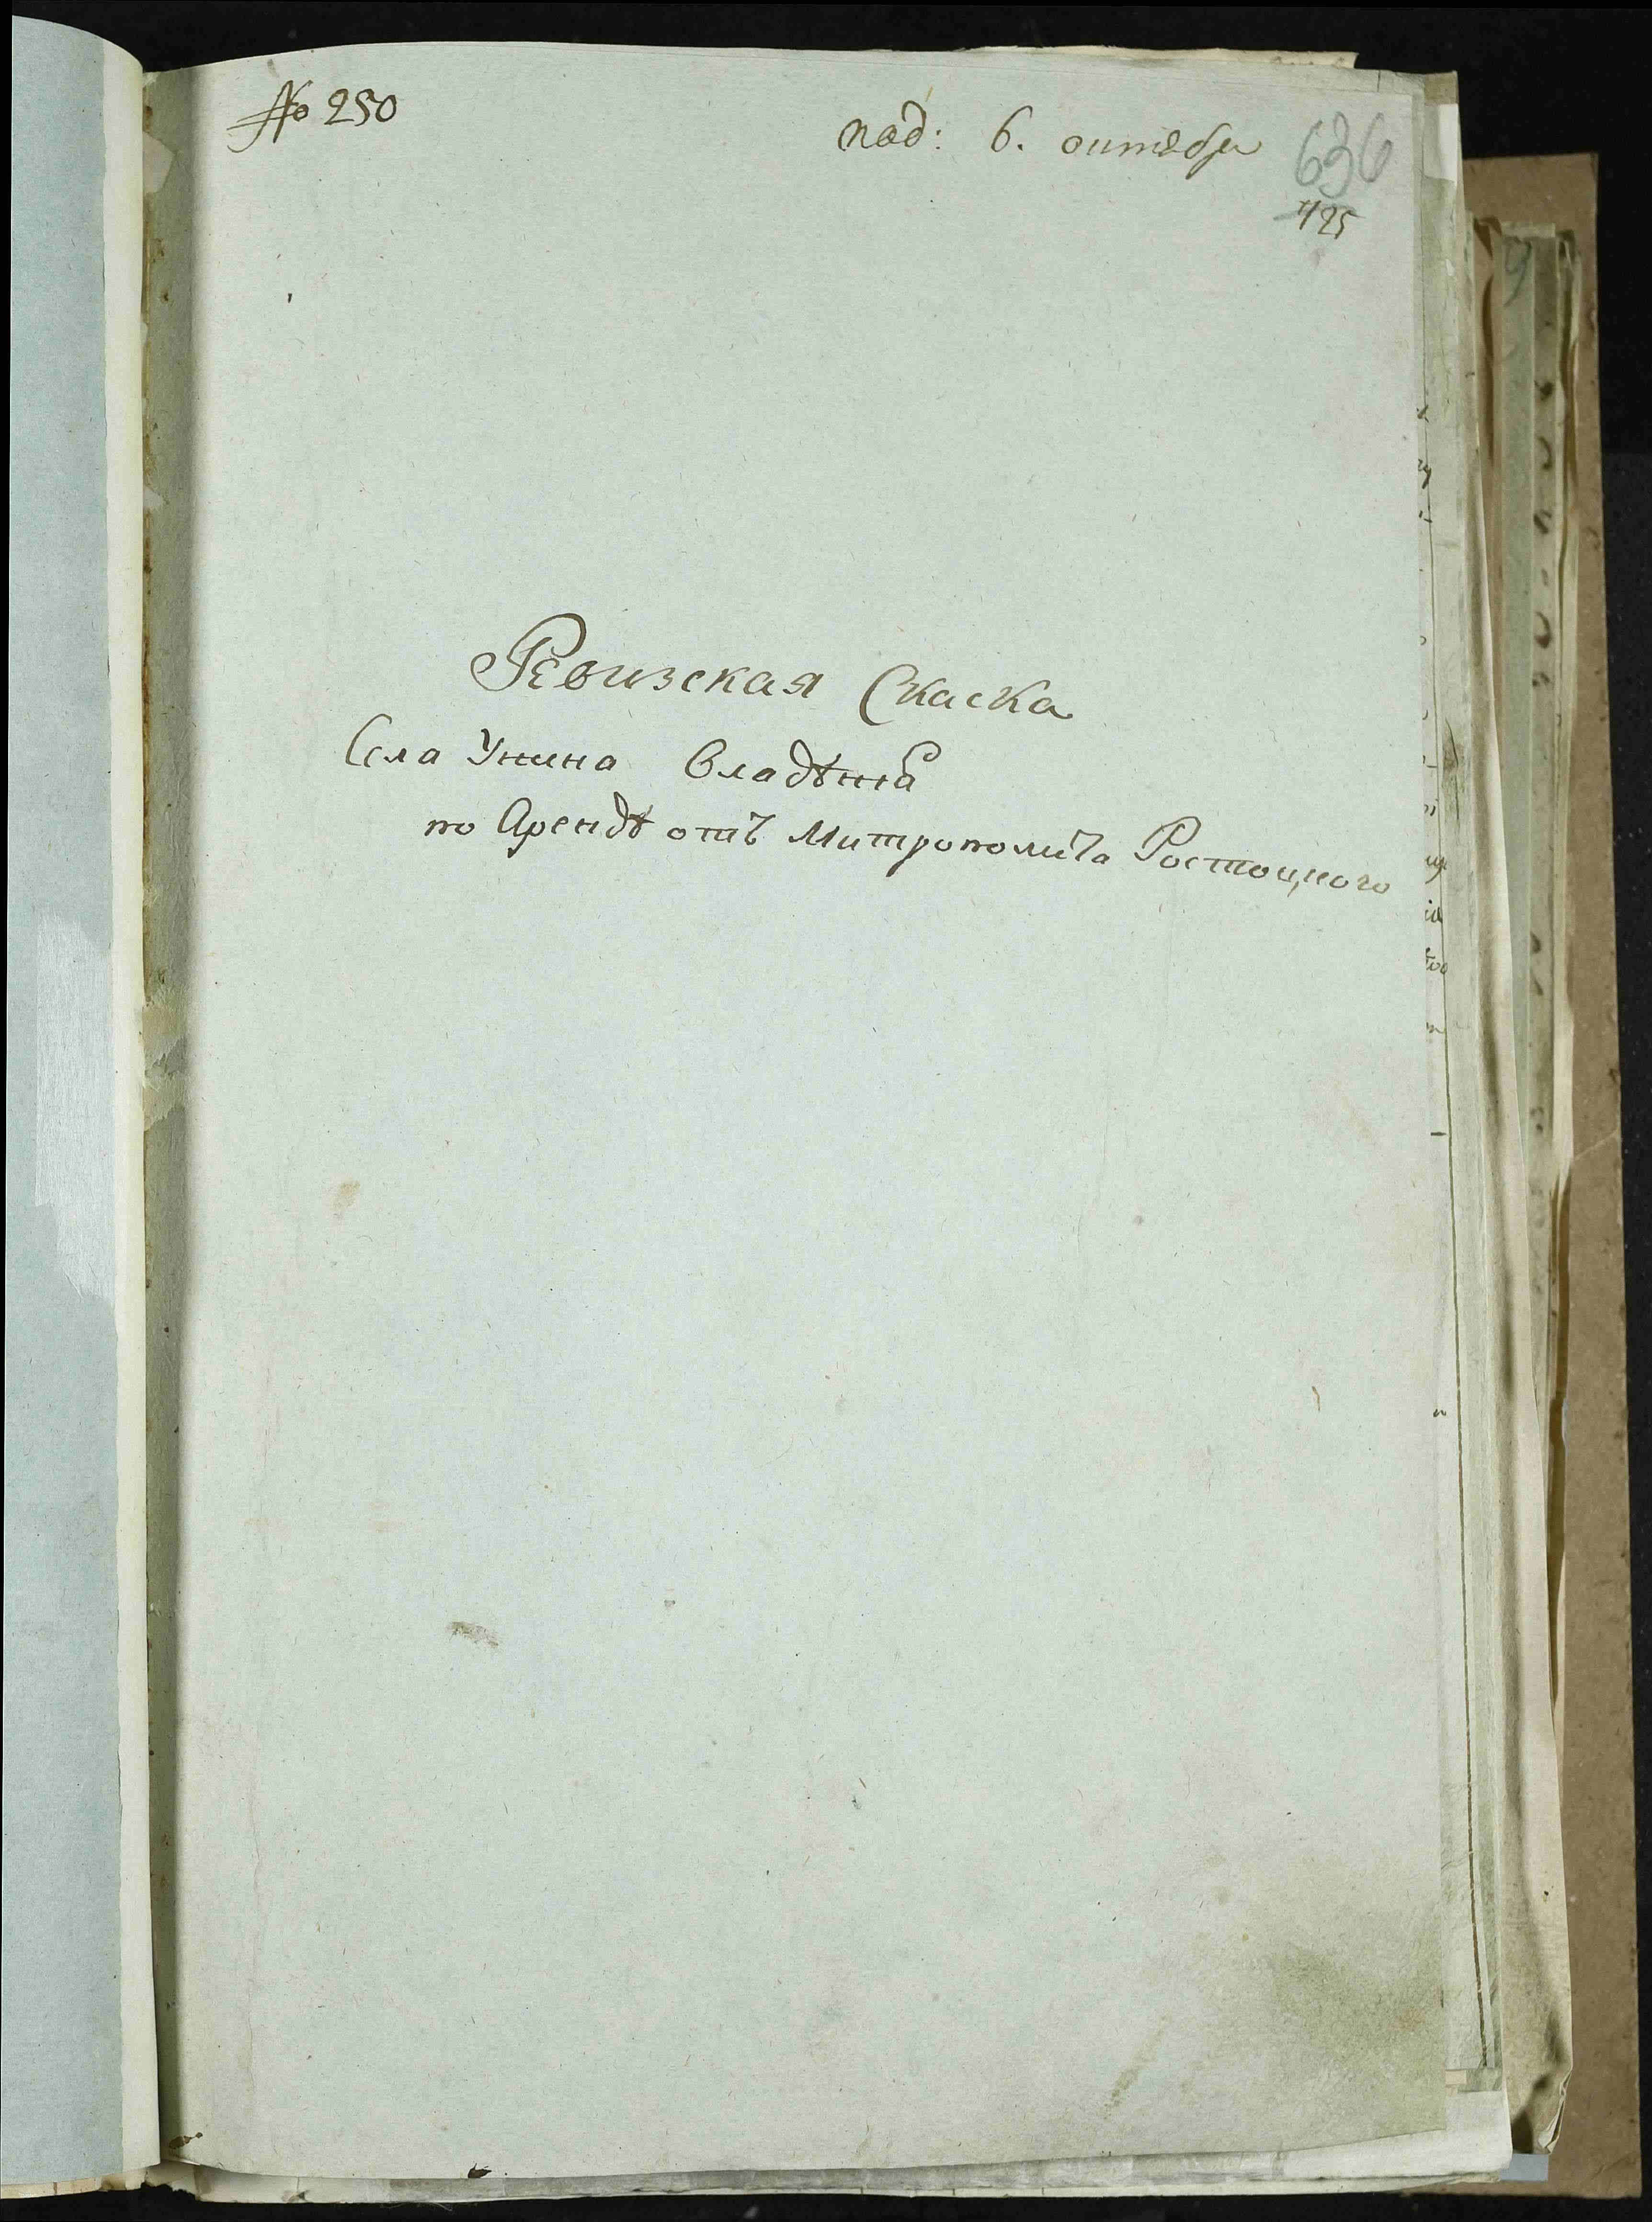 № 250
под: 6. октября
636
425
Ревизская Скаска
Села Унина Владѣнїа
по Арендѣ отъ Митрополита Ростоцкого